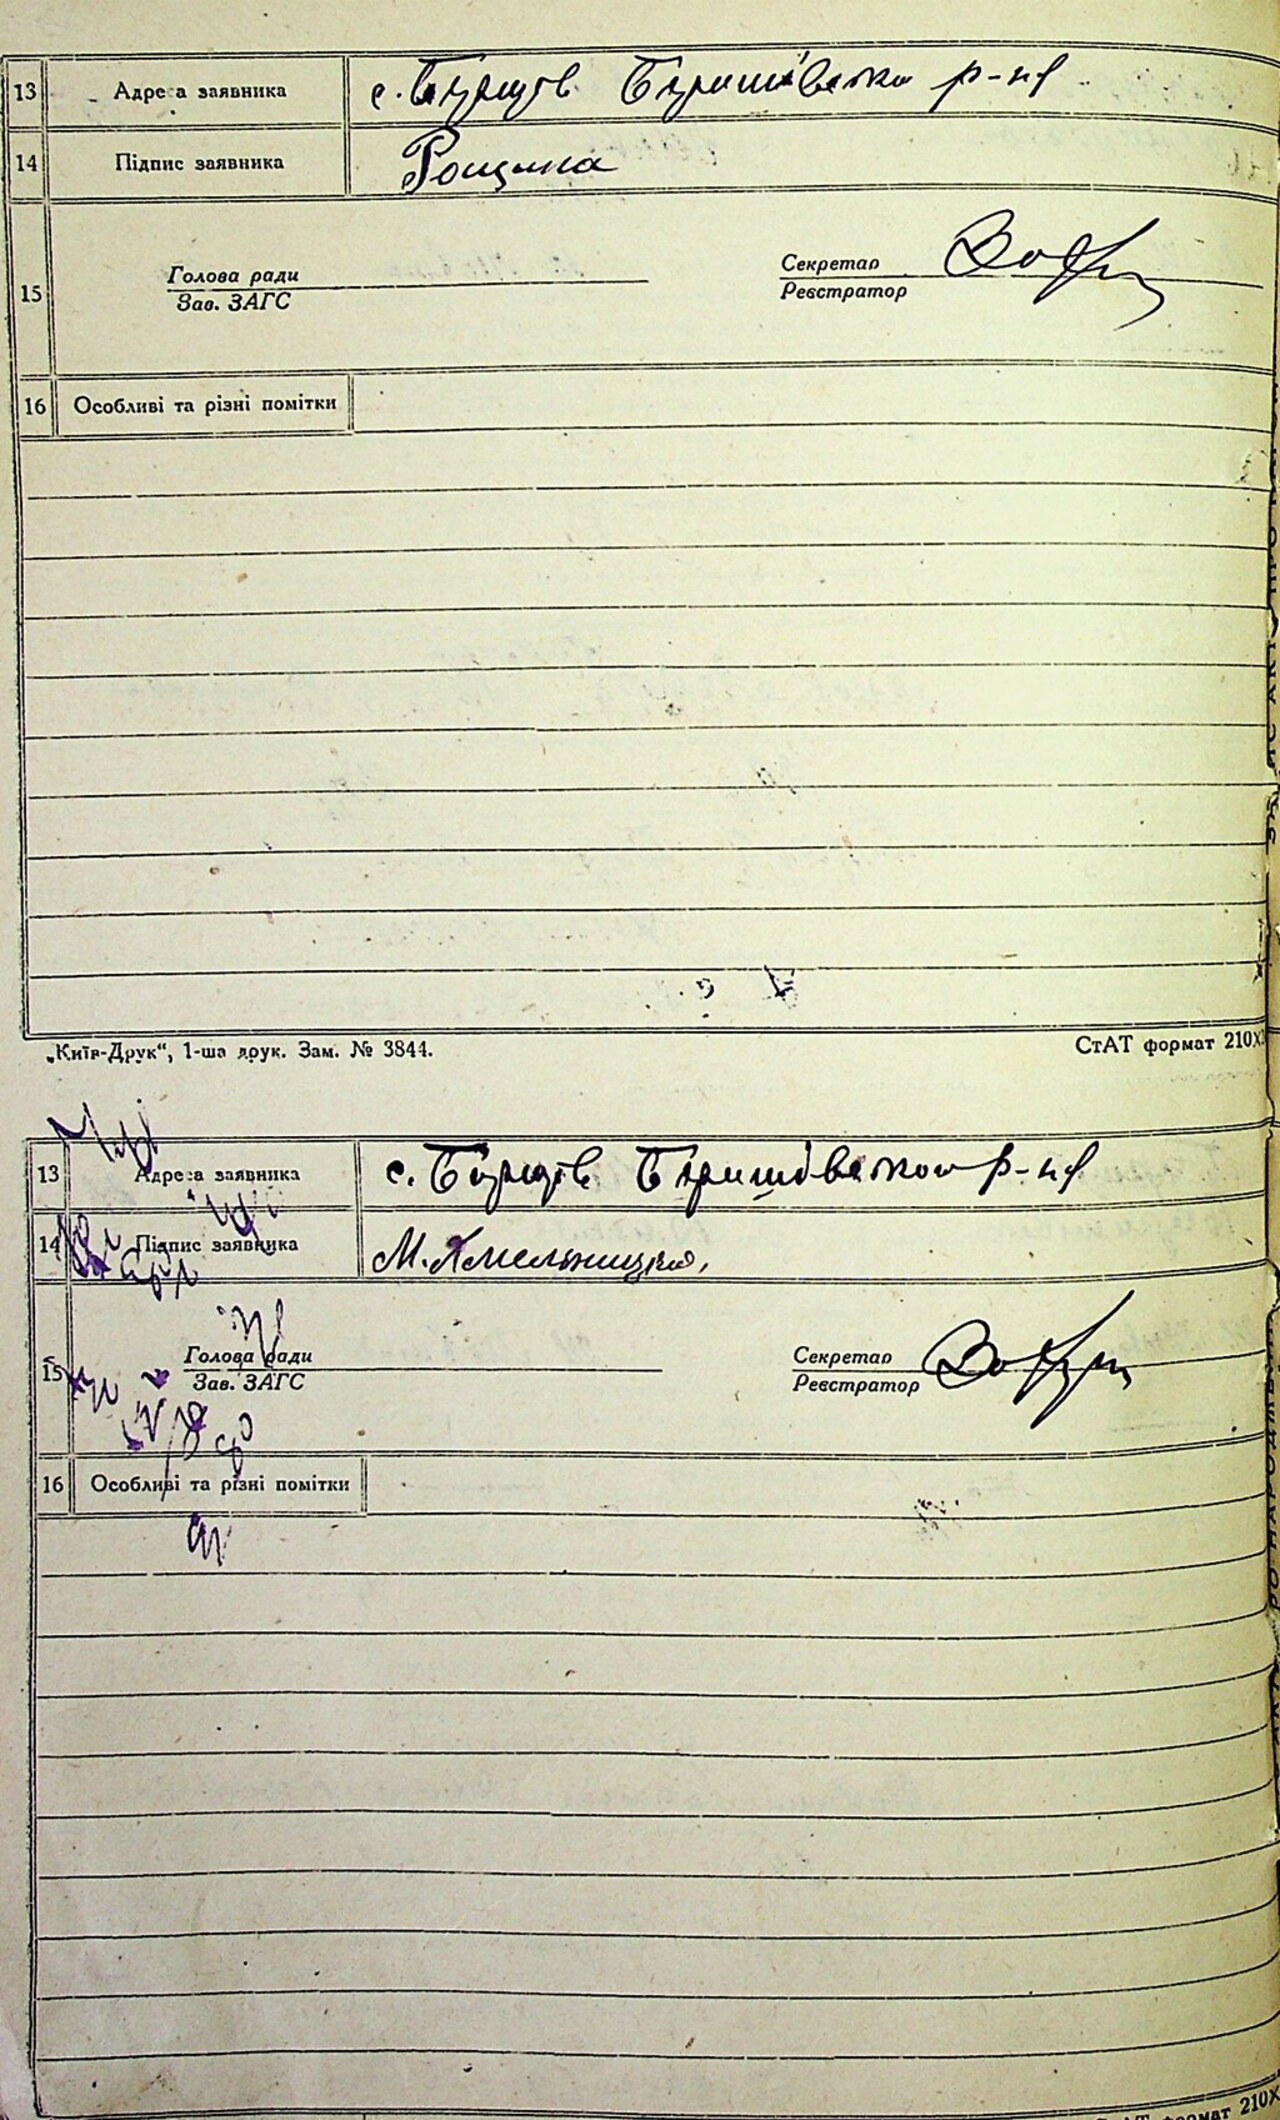 13 Адреса заявника с. Борщів Баришівсько р-ну
14 Підпис заявника Рощина
15 Голова ради Секретар
Зав. ЗАГС Реєстратор
16 Особливі та різні помітки
„Київ-Друк“, 1-ша друк. Зам. № 3844. СтАТ формат 210X
13 Адреса заявника с. Борщів Баришівського р-ну
14 Підпис заявника М. Хмельницька,
15 Голова ради Секретар
Зав. ЗАГС Реєстратор
16 Особливі та різні помітки
формат 210X